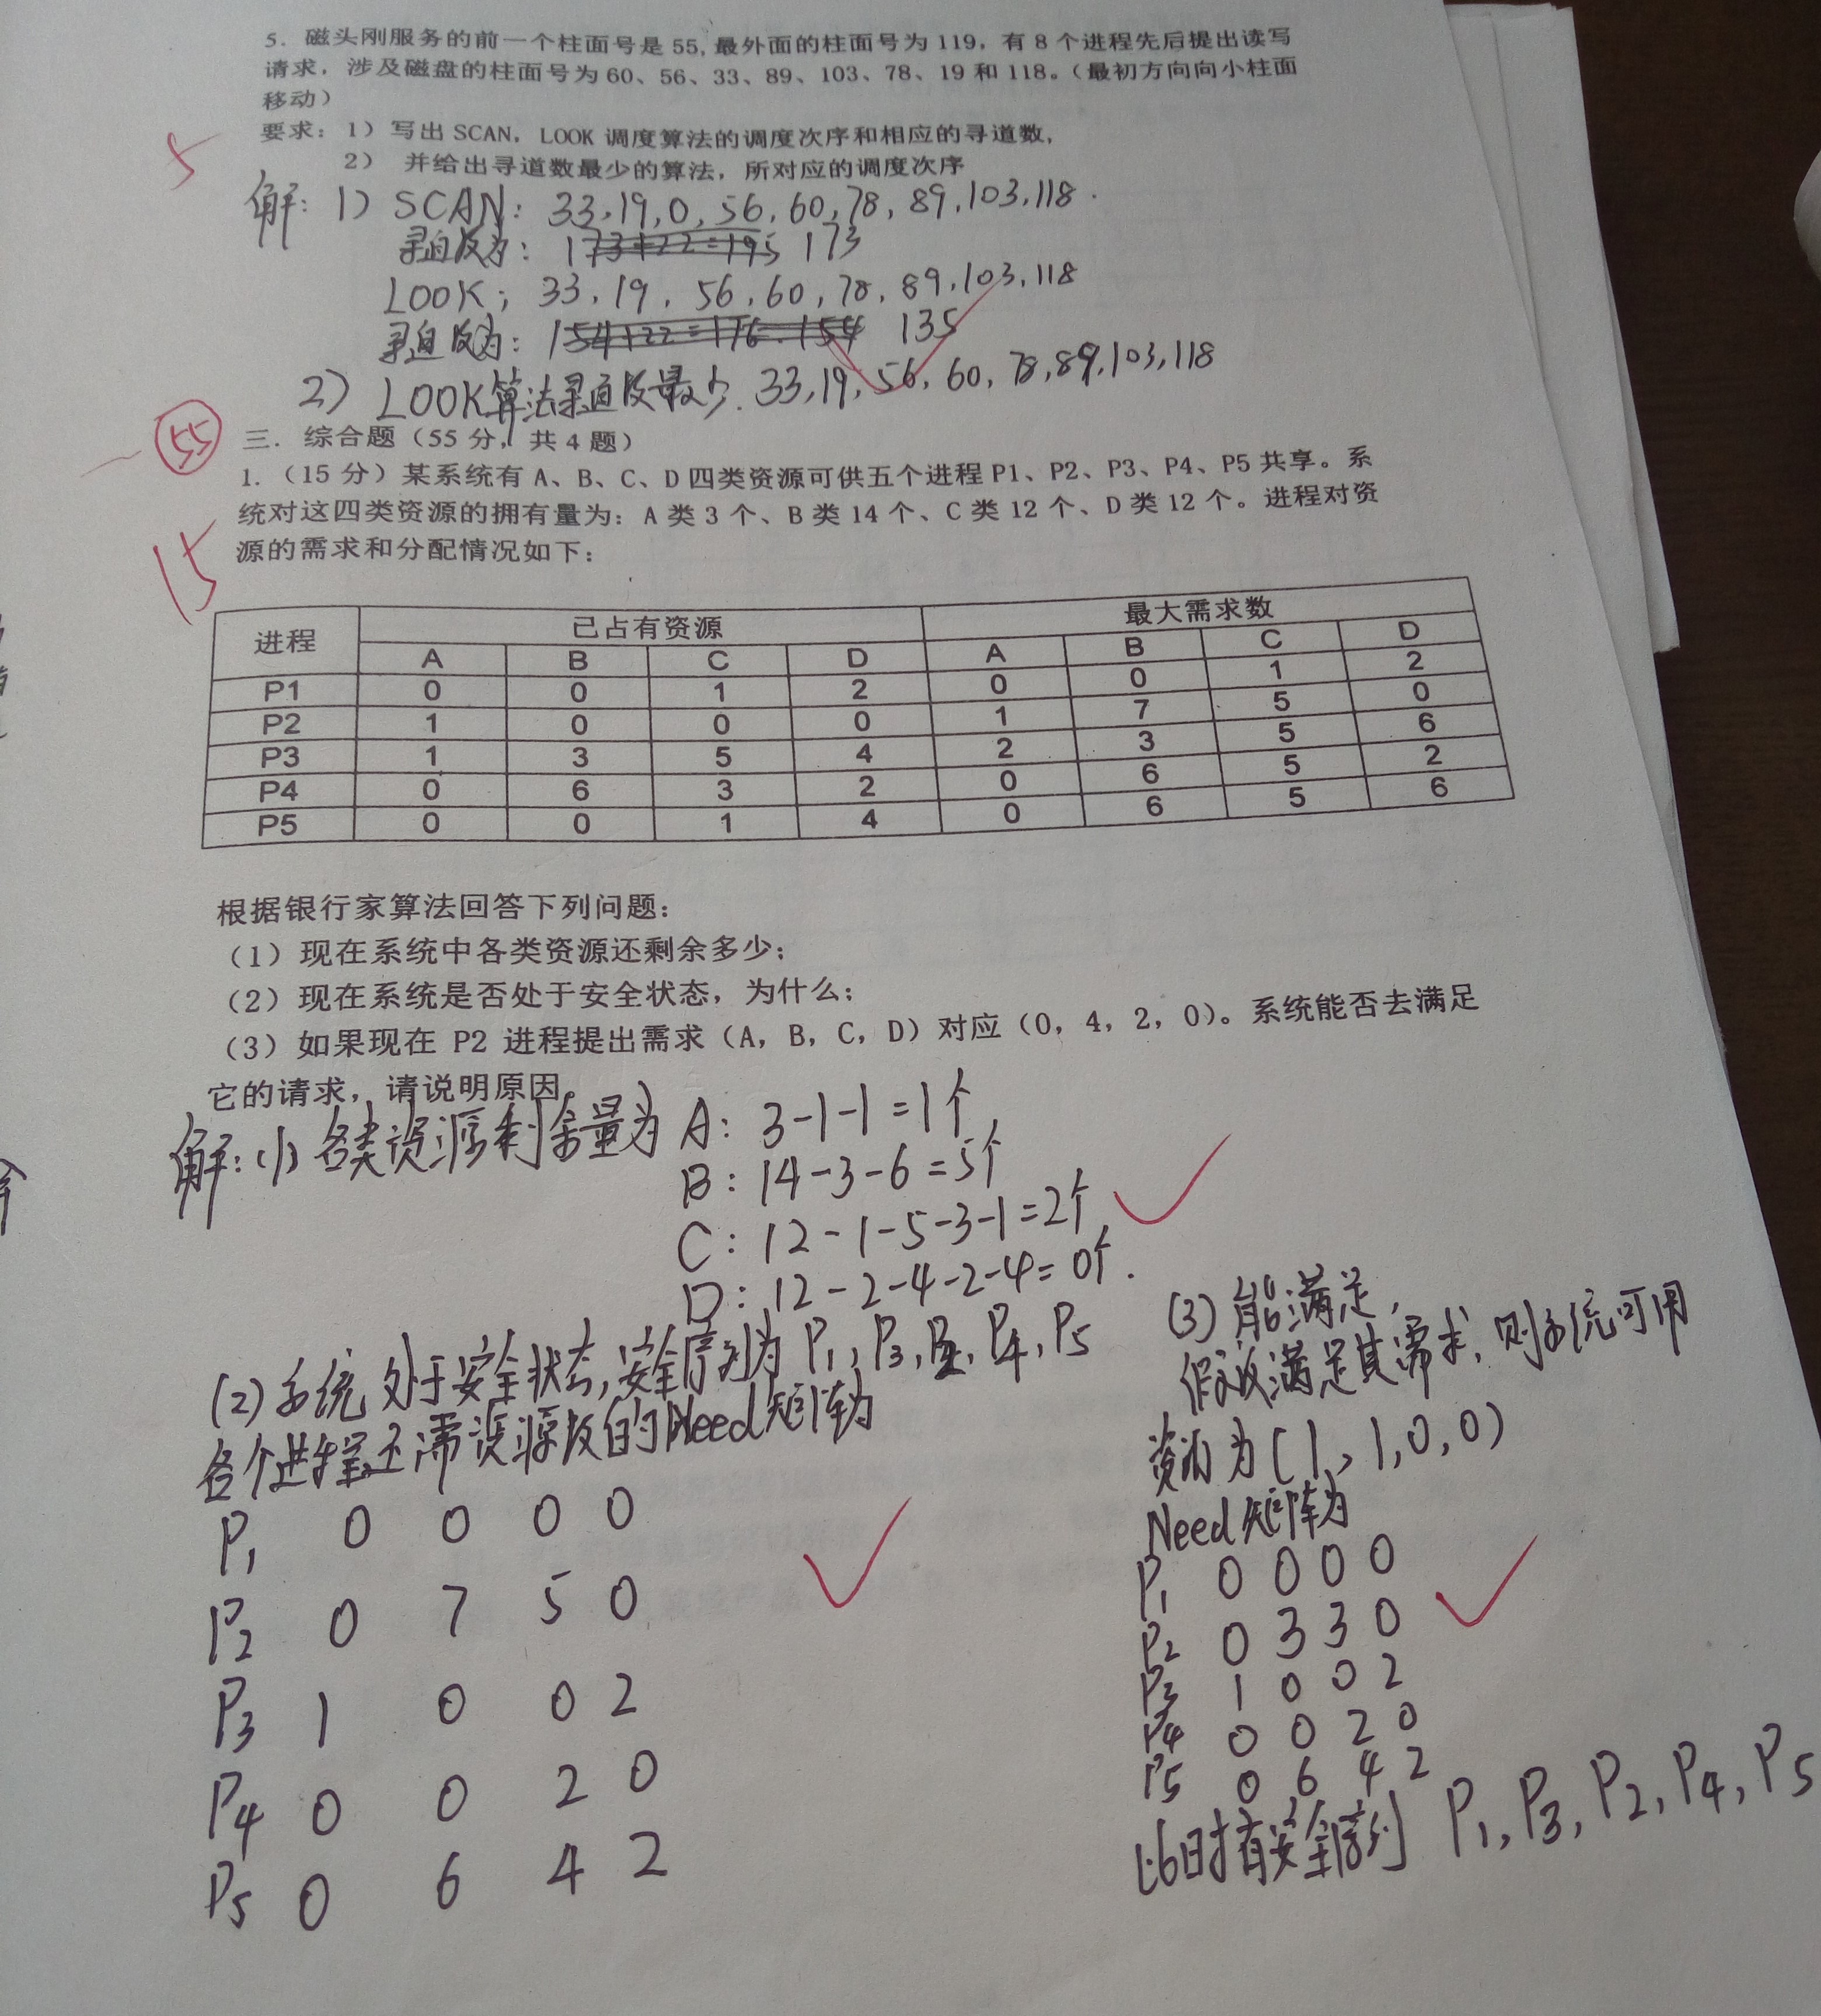 5. 磁头刚服务的前一个柱面号是 55, 最外面的柱面号为 119, 有 8 个进程先后提出读写
请求, 涉及磁盘的柱面号为 60、56、33、89、103、78、19 和 118。(最初方向向小柱面
移动)
要求: 1) 写出 SCAN, LOOK 调度算法的调度次序和相应的寻道数,
2) 并给出寻道数最少的算法, 所对应的调度次序
5
解: 1) SCAN: 33,19,0,56,60,78,89,103,118.
寻道数为: 173+22=195 173
LOOK: 33,19,56,60,78,89,103,118
寻道数为: 154+22=176 154 135
2) LOOK算法寻道数最少. 33,19,56,60,78,89,103,118
55
三. 综合题(55 分, 共 4 题)
1. (15 分) 某系统有 A、B、C、D 四类资源可供五个进程 P1、P2、P3、P4、P5 共享。系
统对这四类资源的拥有量为: A 类 3 个、B 类 14 个、C 类 12 个、D 类 12 个。进程对资
源的需求和分配情况如下:
15
进程 已占有资源 最大需求数
A B C D A B C D
P1 0 0 1 2 0 0 1 2
P2 1 0 0 0 1 7 5 0
P3 1 3 5 4 2 3 5 6
P4 0 6 3 2 0 6 5 2
P5 0 0 1 4 0 6 5 6
根据银行家算法回答下列问题:
(1) 现在系统中各类资源还剩余多少;
(2) 现在系统是否处于安全状态, 为什么;
(3) 如果现在 P2 进程提出需求 (A, B, C, D) 对应 (0, 4, 2, 0)。系统能否去满足
它的请求, 请说明原因。
解: (1) 各类资源剩余量为 A: 3-1-1=1个
B: 14-3-6=5个
C: 12-1-5-3-1=2个
D: 12-2-4-2-4=0个.
(2) 系统处于安全状态, 安全序列为 P1, P3, P2, P4, P5
各个进程还需资源数的Need矩阵为
P1 0 0 0 0
P2 0 7 5 0
P3 1 0 0 2
P4 0 0 2 0
P5 0 6 4 2
(3) 能满足,
假设满足其需求, 则系统可用
资源为 (1, 1, 0, 0)
Need矩阵为
P1 0 0 0 0
P2 0 3 3 0
P3 1 0 0 2
P4 0 0 2 0
P5 0 6 4 2
此时有安全序列 P1, P3, P2, P4, P5